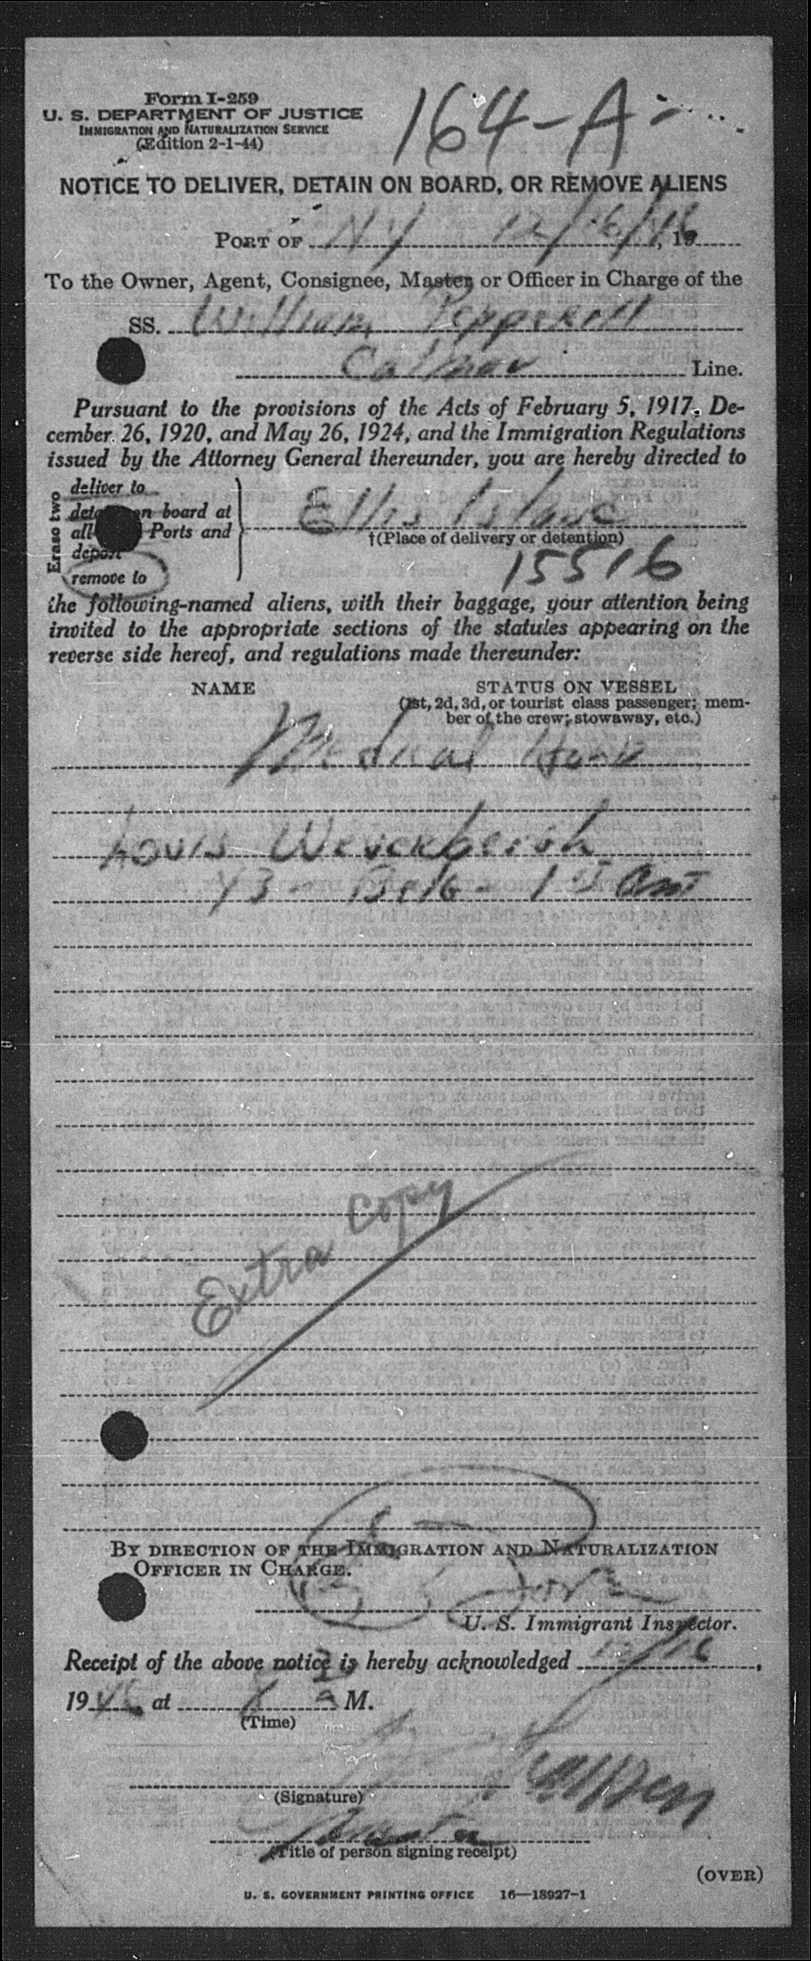 Form I-259
U. S. DEPARTMENT OF JUSTICE
IMMIGRATION AND NATURALIZATION SERVICE
(Edition 2-1-44)
164-A-
NOTICE TO DELIVER, DETAIN ON BOARD, OR REMOVE ALIENS
PORT OF NY 12/16/46, 19
To the Owner, Agent, Consignee, Master or Officer in Charge of the
SS. William Pepperell
Calmar Line.
Pursuant to the provisions of the Acts of February 5, 1917, De-
cember 26, 1920, and May 26, 1924, and the Immigration Regulations
issued by the Attorney General thereunder, you are hereby directed to
Erase two
deliver to
on board at
all Ports and
remove to
Ellis Island
†(Place of delivery or detention)
15516
the following-named aliens, with their baggage, your attention being
invited to the appropriate sections of the statutes appearing on the
reverse side hereof, and regulations made thereunder:
NAME
STATUS ON VESSEL
(1st, 2d, 3d, or tourist class passenger; mem-
ber of the crew; stowaway, etc.)
Medical
Louis
43 - Belg -
Extra copy
BY DIRECTION OF THE IMMIGRATION AND NATURALIZATION
OFFICER IN CHARGE.
U. S. Immigrant Inspector.
Receipt of the above notice is hereby acknowledged 12/16,
19 at M.
(Time)
(Signature)
Master
(Title of person signing receipt)
(OVER)
U. S. GOVERNMENT PRINTING OFFICE 16—18927-1